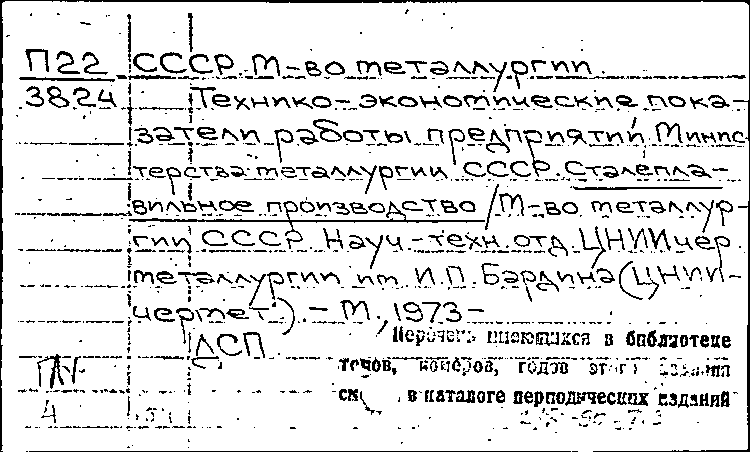 П22 СССР. М-во металлургии.
3824 Технико-экономические пока-
затели работы предприятий Минис-
терства металлургии СССР. Сталепла-
вильное производство / М-во металлур-
гии СССР. Науч.-техн. отд. ЦНИИчер.
металлургии им. И.П. Бардина (ЦНИИ-
чермет). - М., 1973 -
ДСП
Перечень имеющихся в библиотеке
томов, номеров, годов этого издания
см. в каталоге периодических изданий
4